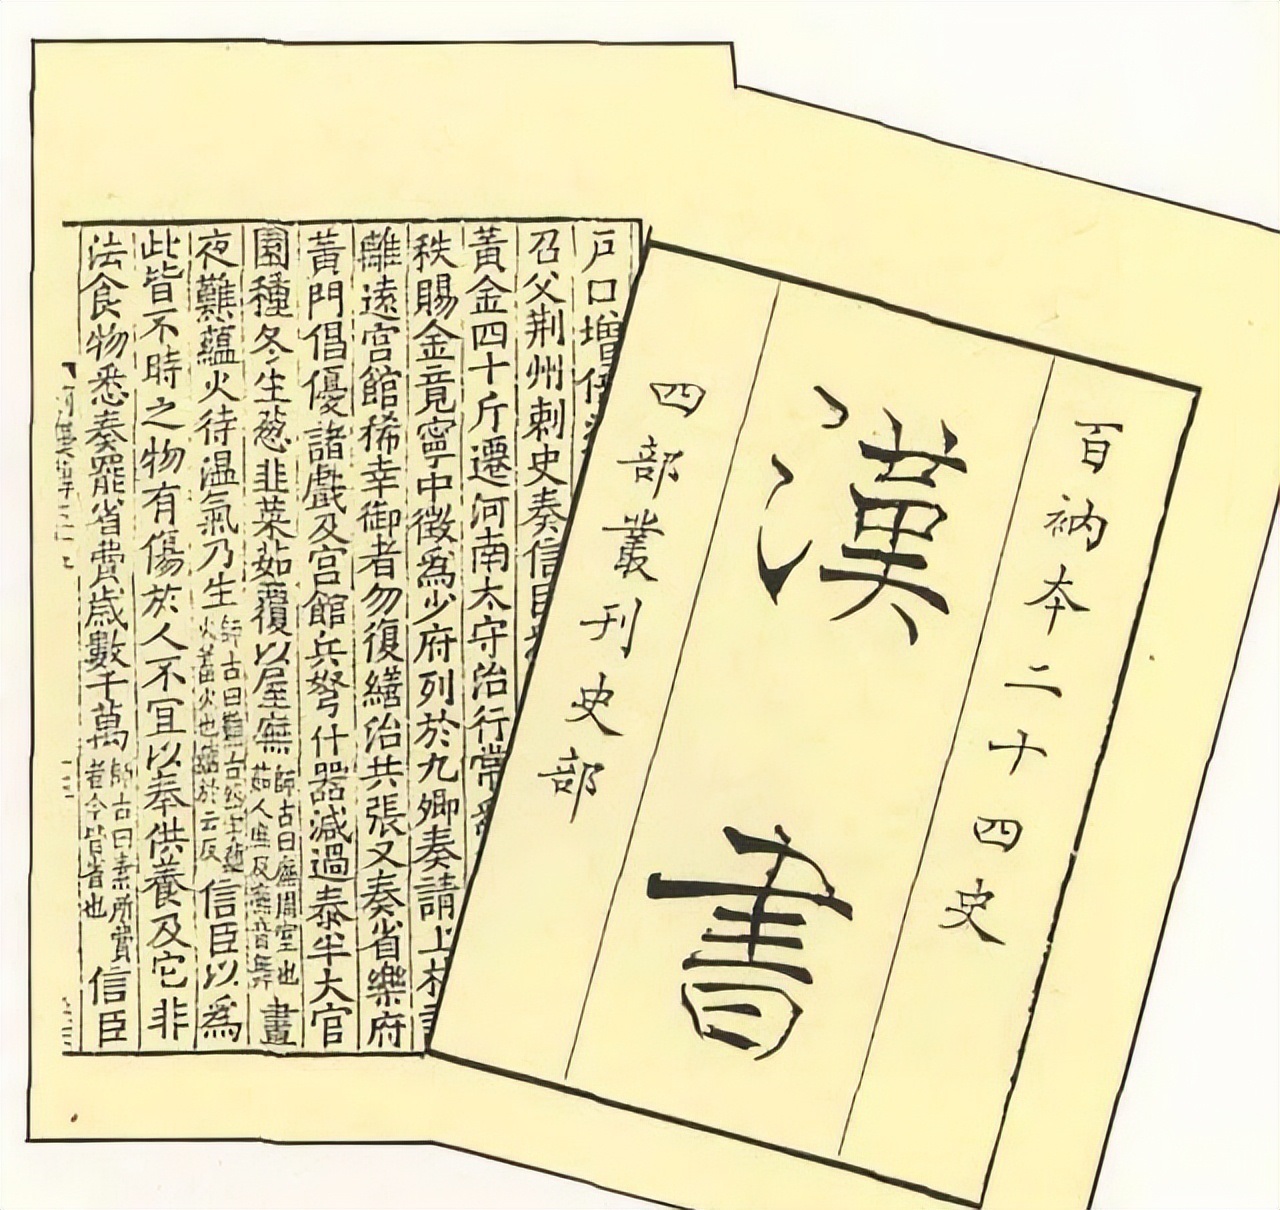 百衲本二十四史
漢書
四部叢刊史部
戶口增倍
召父荆州刺史奏信臣
黃金四十斤遷河南太守治行常爲
秩賜金竟寧中徵爲少府列於九卿奏請上林
離遠宮館稀幸御者勿復繕治共張又奏省樂府
黃門倡優諸戲及宮館兵弩什器減過泰半大官
園種冬生葱韭菜茹覆以屋廡師古曰廡周室也茹人庶反廡音舞晝
夜難蘊火待溫氣乃生師古曰難古然字蘊火蓄火也蘊於云反信臣以爲
此皆不時之物有傷於人不宜以奉供養及它非
法食物悉奏罷省費歲數千萬師古曰素所費者今皆省也信臣